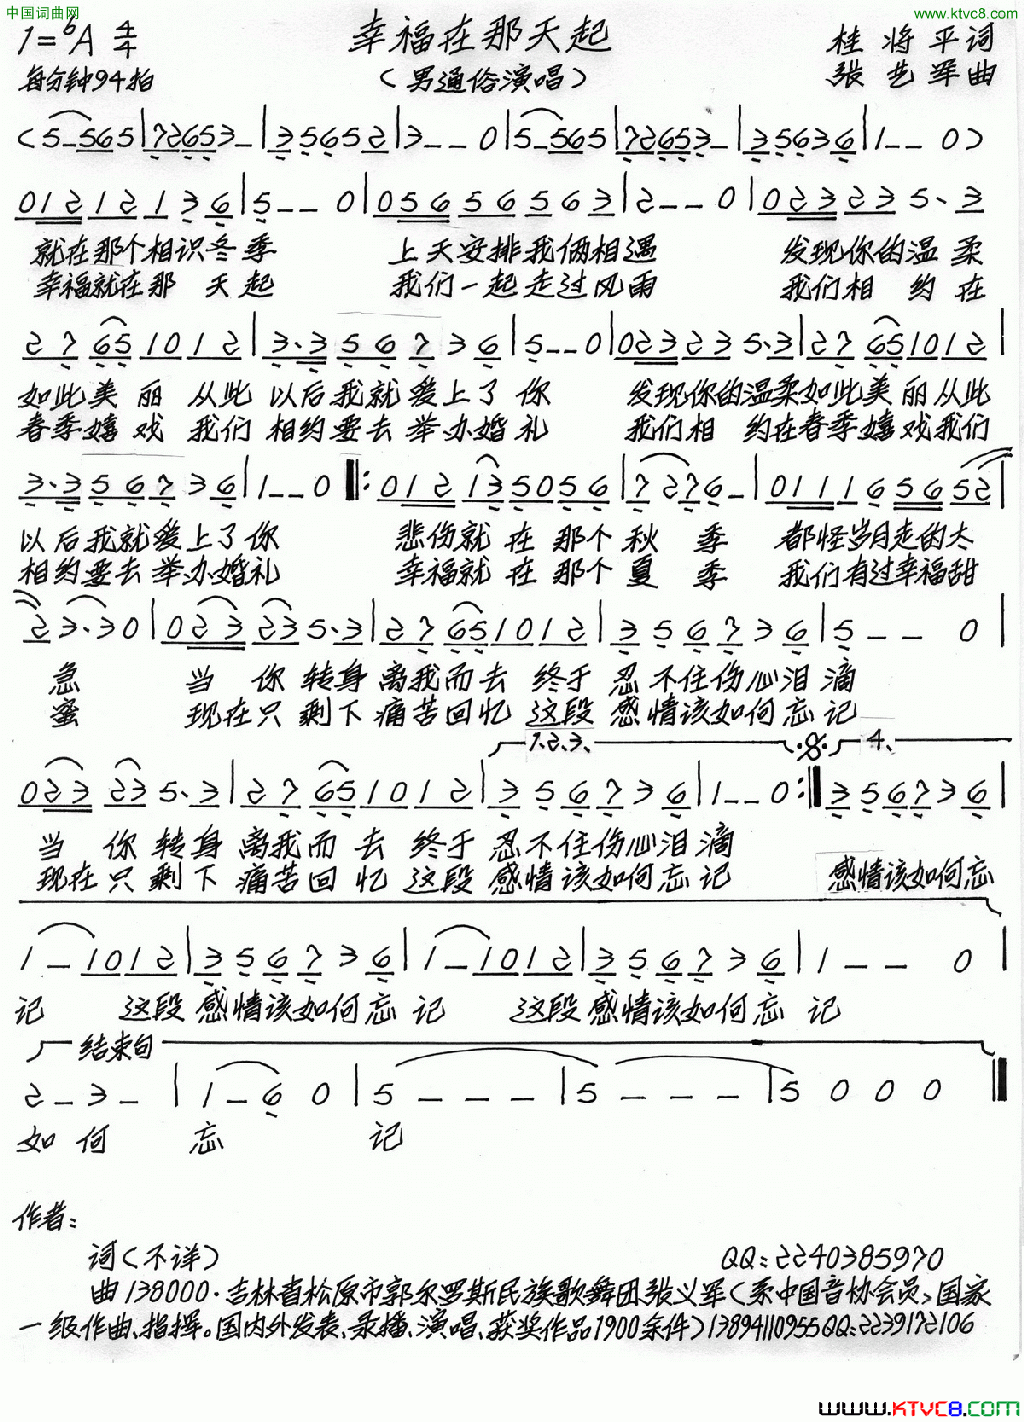 中国词曲网
www.ktvc8.com
1=♭A 4/4
幸福在那天起
桂将平词
每分钟94拍
(男通俗演唱)
张艺军曲
(5-565|72653-|35652|3--0|5-565|72653-|35636|1--0)
01212136|5--0|05656563|2--0|02325·3
就在那个相识冬季 上天安排我俩相遇 发现你的温柔
幸福就在那天起 我们一起走过风雨 我们相约在
27651012|3·356736|5--0|0232235·3|27651012|
如此美丽从此以后我就爱上了你 发现你的温柔如此美丽从此
春季嬉戏我们相约要去举办婚礼 我们相约在春季嬉戏我们
3·356736|1--0‖:0121350556|7276-|011165652|
以后我就爱上了你 悲伤就在那个秋季 都怪岁月走的太
相约要去举办婚礼 幸福就在那个夏季 我们有过幸福甜
23·30|023235·3|27651012|356736|5--0|
急 当你转身离我而去终于忍不住伤心泪滴
蜜 现在只剩下痛苦回忆这段感情该如何忘记
1.2.3. 4.
023235·3|27651012|356736|1--0:‖356736|
当你转身离我而去终于忍不住伤心泪滴
现在只剩下痛苦回忆这段感情该如何忘记 感情该如何忘
1-1012|356736|1-1012|356736|1--0|
记 这段感情该如何忘记 这段感情该如何忘记
结束句
2-3-|1-60|5---|5---|5000‖
如何忘记
作者:
词(不详) QQ:2240385970
曲138000·吉林省松原市郭尔罗斯民族歌舞团张义军(系中国音协会员,国家
一级作曲、指挥。国内外发表、录播、演唱、获奖作品1900余件)13894110955QQ:2239172106
www.KTVC8.com